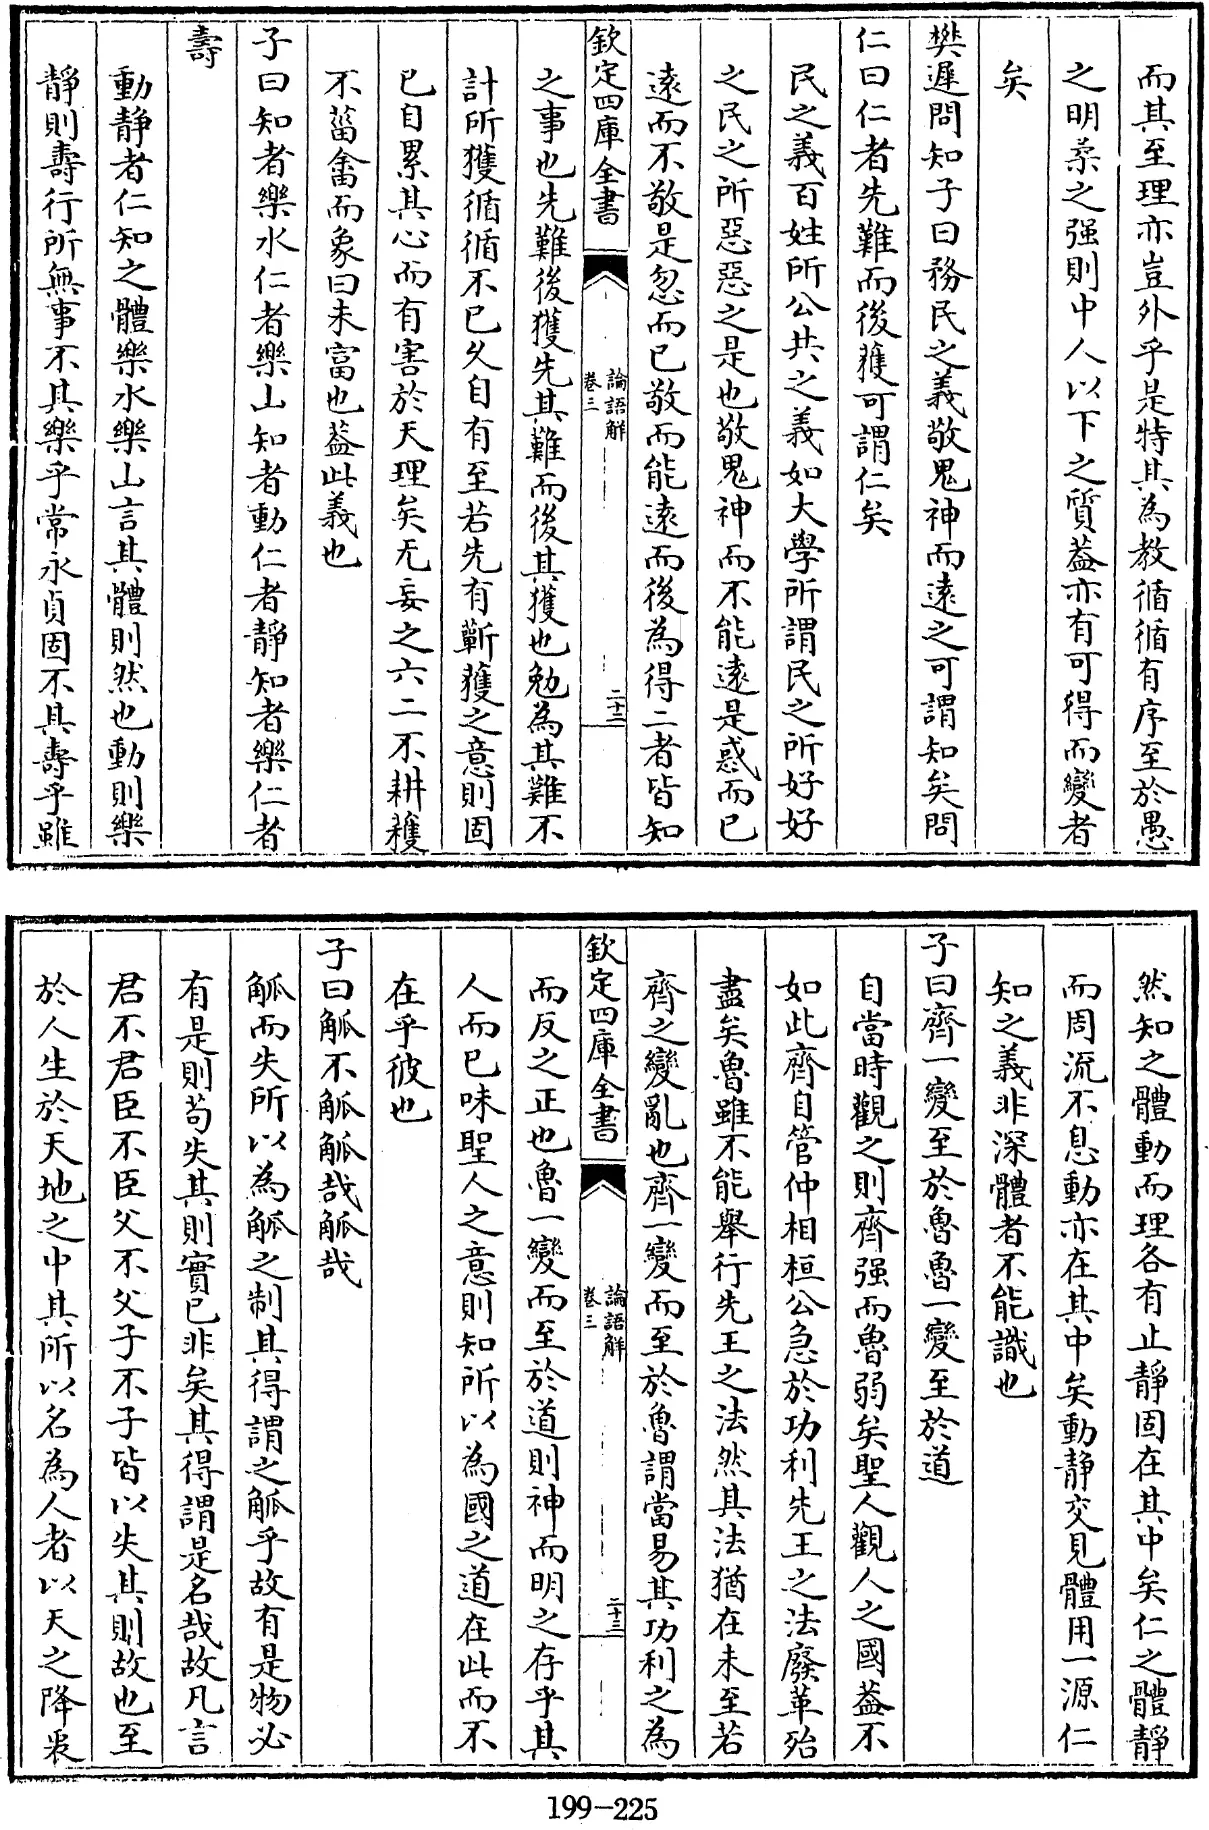 而其至理亦豈外乎是特其為教循循有序至於愚
之明柔之强則中人以下之質葢亦有可得而變者
矣
樊遲問知子曰務民之義敬鬼神而逺之可謂知矣問
仁曰仁者先難而後獲可謂仁矣
民之義百姓所公共之義如大學所謂民之所好好
之民之所惡惡之是也敬鬼神而不能逺是惑而已
逺而不敬是忽而已敬而能逺而後為得二者皆知
欽定四庫全書
論語解
卷三
二十二
之事也先難後獲先其難而後其獲也勉為其難不
計所獲循循不已乆自有至若先有蘄獲之意則固
已自累其心而有害於天理矣无妄之六二不耕穫
不菑畬而象曰未富也葢此義也
子曰知者樂水仁者樂山知者動仁者靜知者樂仁者
壽
動靜者仁知之體樂水樂山言其體則然也動則樂
靜則壽行所無事不其樂乎常永貞固不其壽乎雖
然知之體動而理各有止靜固在其中矣仁之體靜
而周流不息動亦在其中矣動靜交見體用一源仁
知之義非深體者不能識也
子曰齊一變至於魯魯一變至於道
自當時觀之則齊强而魯弱矣聖人觀人之國葢不
如此齊自管仲相桓公急於功利先王之法廢革殆
盡矣魯雖不能舉行先王之法然其法猶在未至若
齊之變亂也齊一變而至於魯謂當易其功利之為
欽定四庫全書
論語解
卷三
二十三
而反之正也魯一變而至於道則神而明之存乎其
人而已味聖人之意則知所以為國之道在此而不
在乎彼也
子曰觚不觚觚哉觚哉
觚而失所以為觚之制其得謂之觚乎故有是物必
有是則茍失其則實已非矣其得謂是名哉故凡言
君不君臣不臣父不父子不子皆以失其則故也至
於人生於天地之中其所以名為人者以天之降衷
199-225